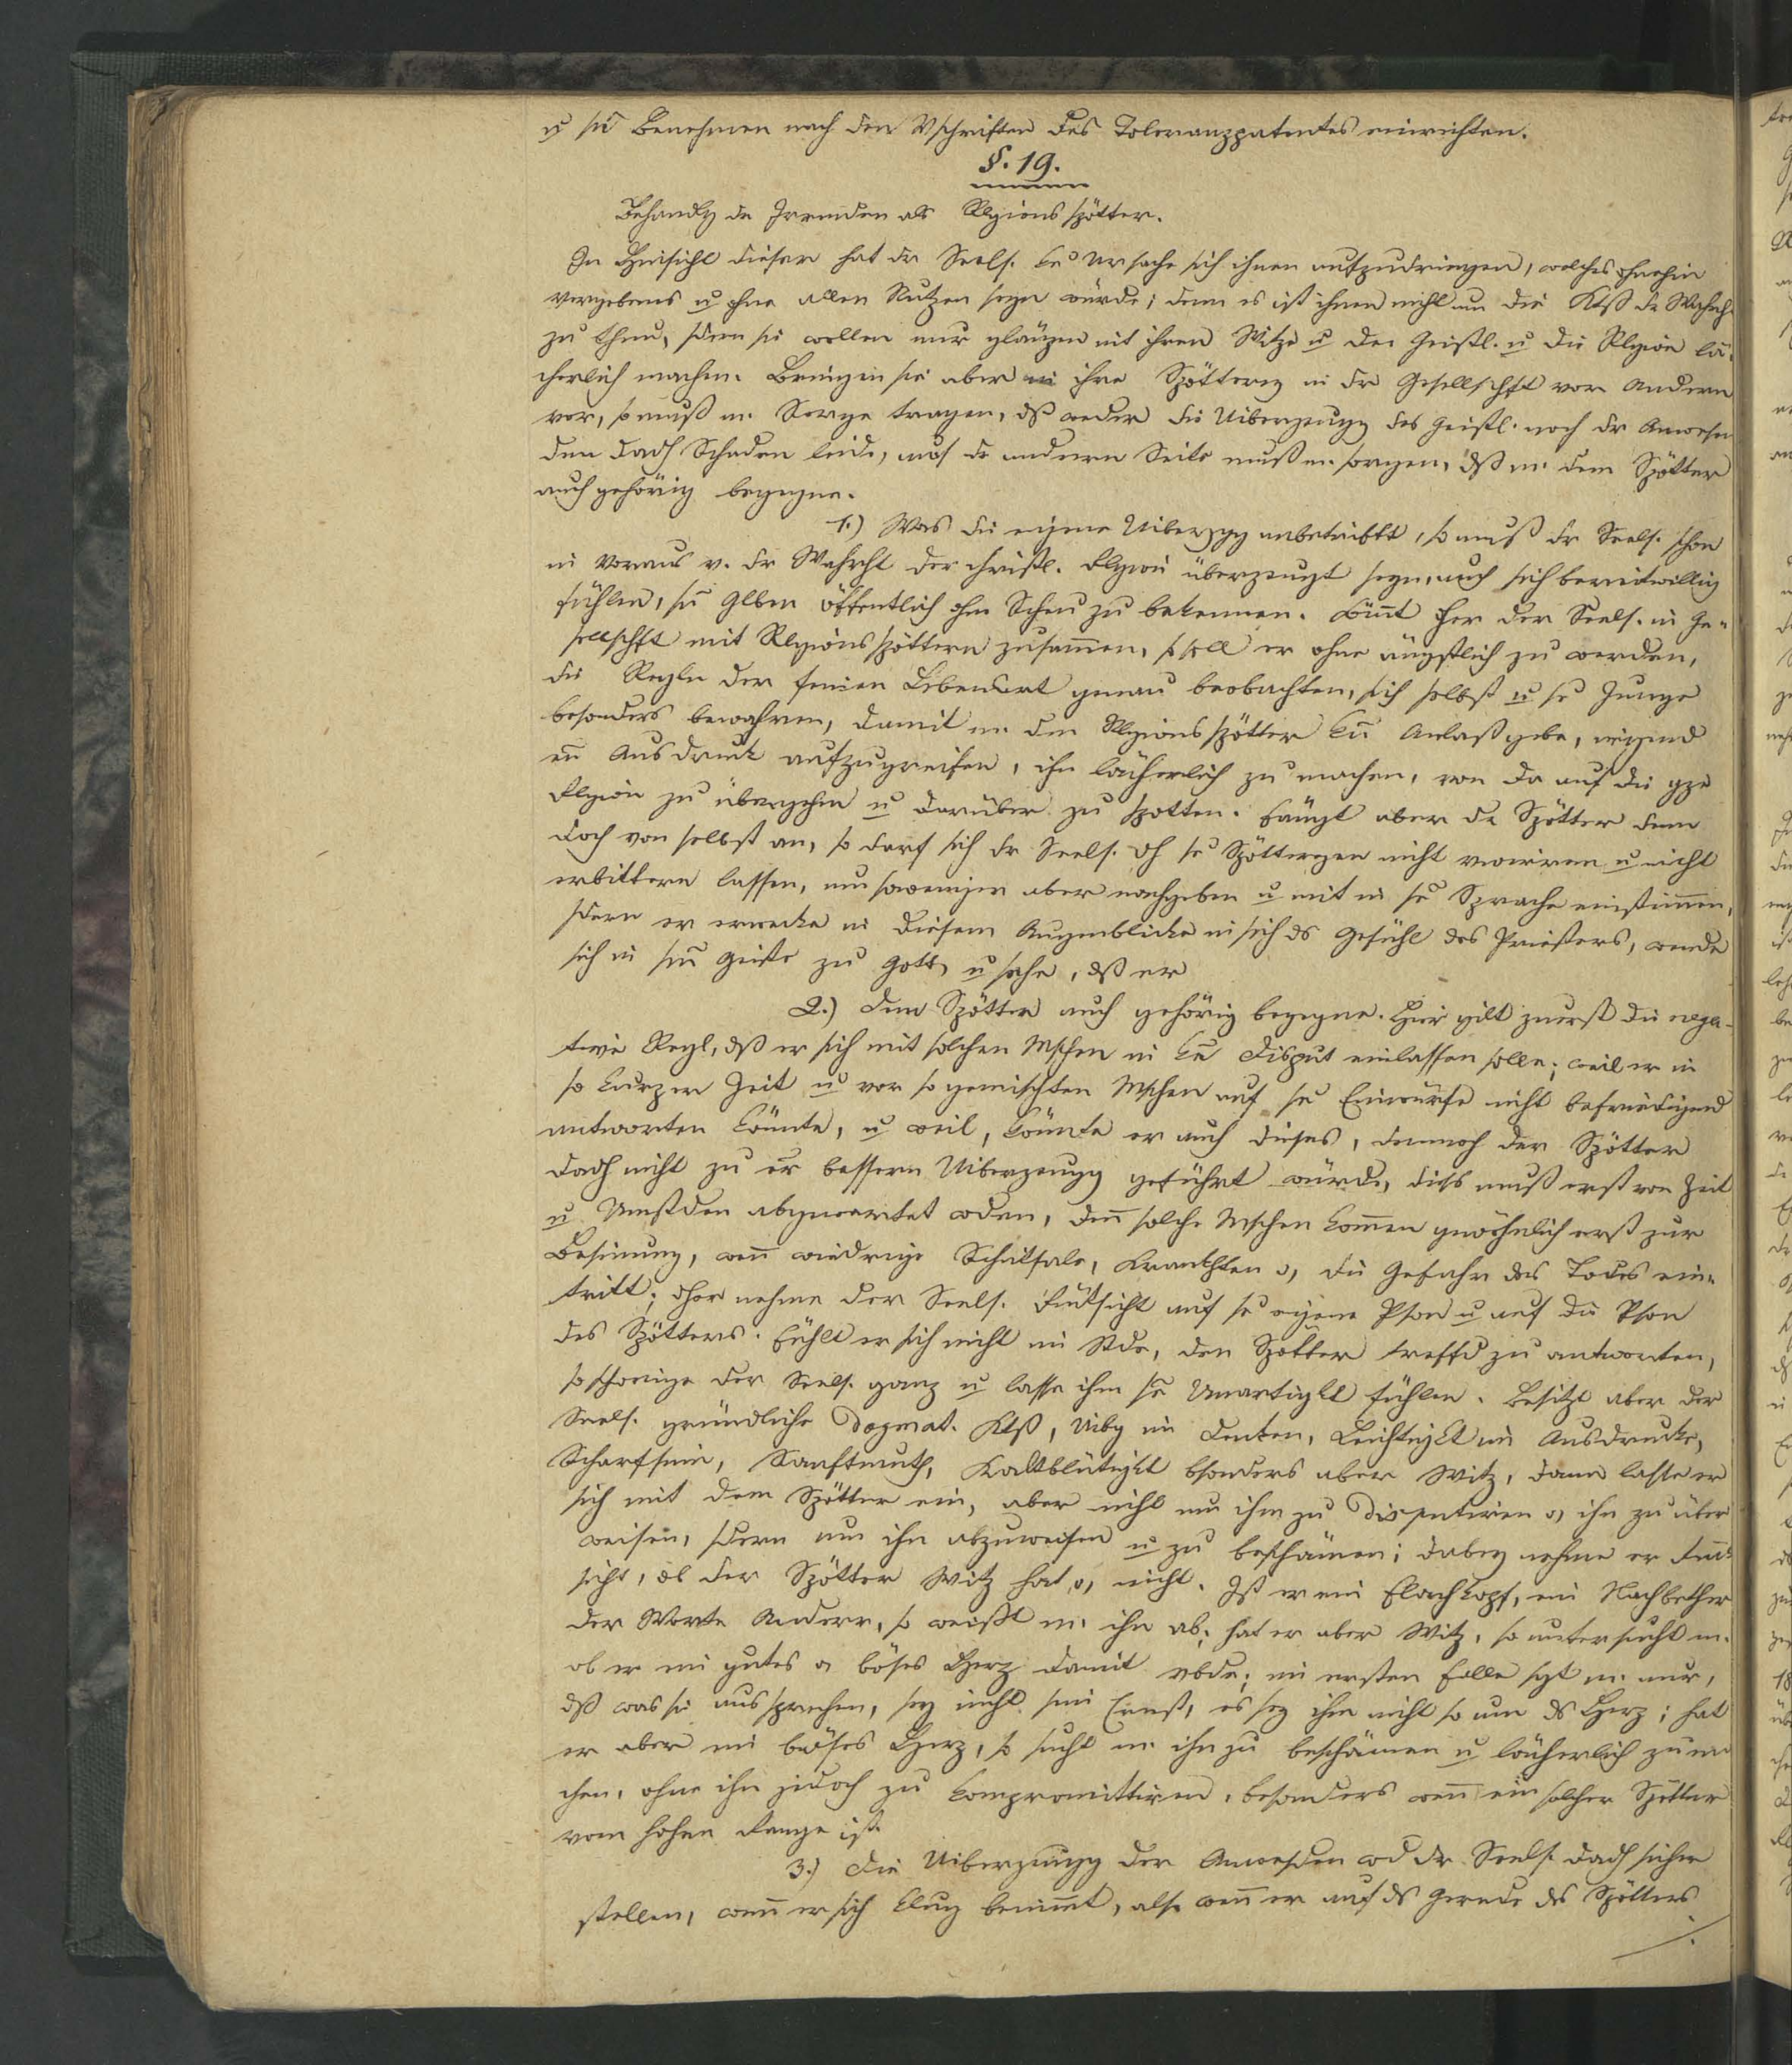 u sn̄ Benehmen nach den Vschriften des Toleranzpatentes einrichten.
§. 19.
Behandlg der Irrenden als Rlgions spötter.
In Hinsicht dieser hat der Seels. ke Ursache sich ihnen aufzudringen, welches ohnehin
vergebens u ohne allen Nutzen seyn würde; denn es ist ihnen nicht um die Ktß der Wahrh.
zu thun, sdern sie wollen nur glänzen mit ihren Witze u den Geistl. u die Rlgion lä-
cherlich machen. Bringen sie aber ihre Spötterey in der Gesellschft vor Andern
vor, so muß m. Sorge tragen, dß weder die Uiberzeugg des Geistl. noch der Anwesen
den dadh Schaden leide, auf der andern Seite muß m. sorgen, dß m. dem Spötter
auch gehörig begegne.
1.) Was die eigene Uiberzgg anbetrifft, so muß der Seels. schon
im Voraus v. der Wahrht der christl. Rlgion überzeugt seyn, auch sich bereitwillig
fühlen, sn̄ Glben öffentlich ohne Scheu zu bekennen. Kom̄t Pher der Seels. in Ge-
sellschft mit Rlgionsspöttern zusam̄en, so soll er ohne ängstlich zu werden,
die Regln der feinen Lebensart genau beobachten, sich selbst u se Zunge
besonders bewahren, damit m. den Rlgionsspötter kn̄ Anlaß gebe, irgend
en̄ Ausdruck aufzugreifen, ihn lächerlich zu machen, von da auf die gze
Rlgion zu übergehen u darüber zu spotten. Fängt aber der Spötter denn
doch von selbst an, so darf sich der Seels. dh se Spöttereyen nicht verwirren u nicht
erbittern lassen, um soweniger aber nachgeben u mit in se Sprache einstim̄en,
sdern er erwecke in diesem Augenblicke in sich ds Gefühl des Priesters, wende
sich in sm̄ Geiste zu Gott, u sehe, dß er
2.) dem Spötter auch gehörig begegne. Hier gilt zuerst die nega-
tive Regl, dß er sich mit solchen Mschen in kn̄ Disput einlassen solle; weil er in
so kurzer Zeit u vor so gemischten Mschen auf se Einwürfe nicht befriedigend
antworten könnte, u weil, könnte er auch dieses, dennoch der Spötter
dadh nicht zu er bessern Uiberzeugg geführt würde, dieß muß erst von Zeit
u Umstden abgewartet wden, den̄ solche Mschen kom̄en gewöhnlich erst zur
Besin̄ung, wen̄ wiedrige Schiksale, Krankhten o, die Gefahr des Todes ein-
tritt; Pher nehme der Seels. Rüksicht auf se eigene Pson u auf die Pson
des Spötters. Fühlt er sich nicht im Stde, den Spötter treffd zu antworten,
so schweige der Seels. ganz u lasse ihm se Unartigkt fühlen. Besitzt aber der
Seels. gründliche dogmat. Ktß, Uibg im Denken, Leichtigkt im Ausdrucke,
Scharfsinn, Sanftmuth, Kaltblütigkt bsonders aber Witz, dann lasse er
sich mit dem Spötter ein, aber nicht um ihm zu disputiren o, ihn zu über
weisen, sdern um ihn abzuweisen u zu beschämen; dabey nehme er Rük-
sicht, ob der Spötter Witz hat, o, nicht. Ist er ein Flachkopf, ein Nachbether
der Worte Anderer, so weißt m. ihn ab; hat er aber Witz, so untersucht m.
ob er ein gutes o böses Herz damit vbde; im ersten Falle sgt m. nur,
dß was sie aussprechen, sey nicht sein Ernst, es sey ihm nicht so um ds Herz; hat
er aber ein böses Herz, so sucht m. ihn zu beschämen u lächerlich zu ma
chen, ohne ihn jedoch zu kompromittiren, besonders wen̄ ein solcher Spötter
vom hohen Range ist.
3.) Die Uiberzeugg der Anwesden wd der Seels. dadh sicher
stellen, wen̄ er sich klug benim̄t, also wen̄ er auf ds Gerede des Spötters